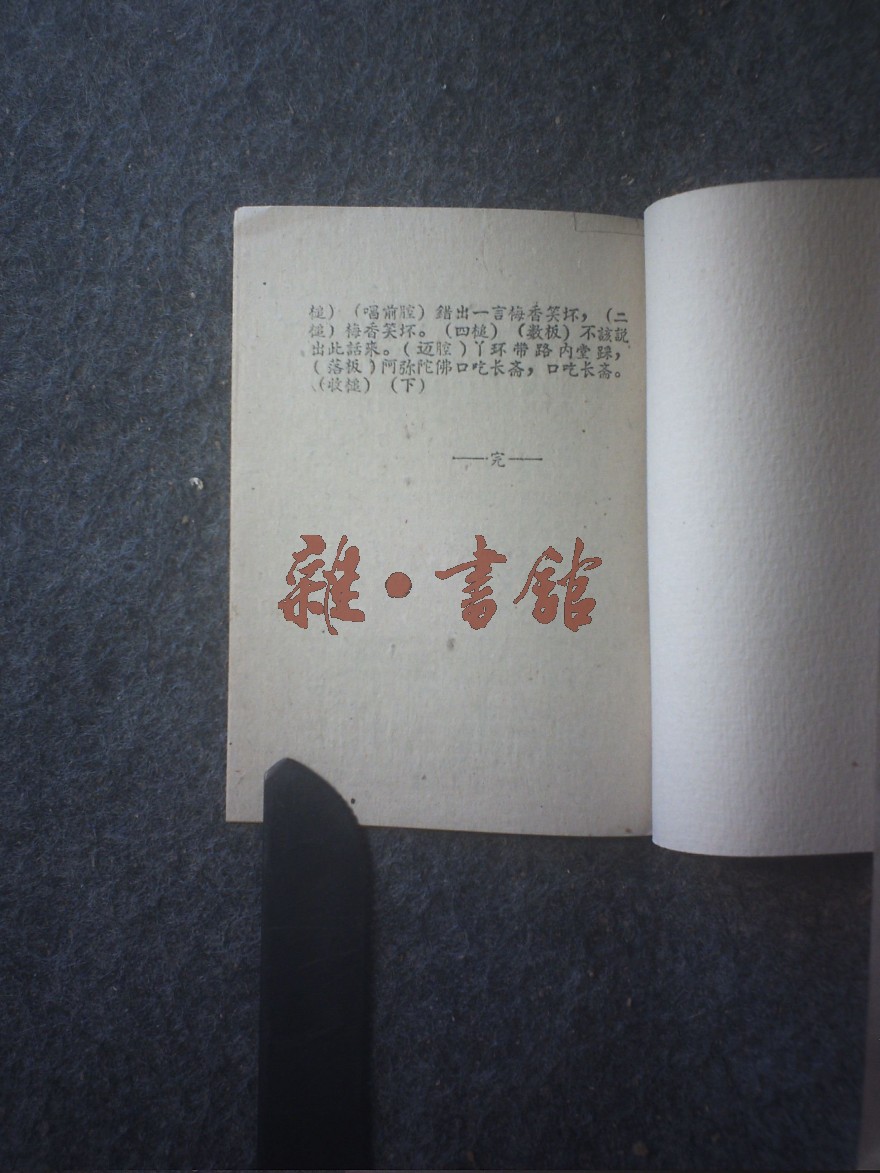 槌）（唱前腔）錯出一言梅香笑坏，（二
槌）梅香笑坏。（四槌）（数板）不該説
出此話来。（迈腔）丫环带路内堂踩，
（落板）阿弥陀佛口吃长斋，口吃长斋。
（收槌）（下）
——完——
雜·書館